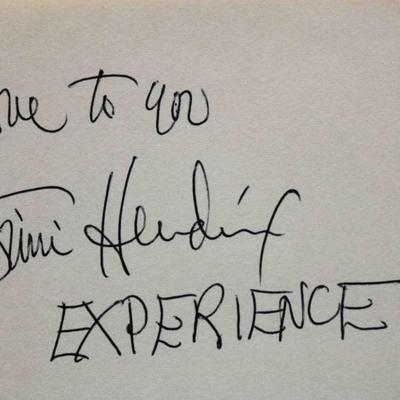 ve to you
Jimi Hendrix
EXPERIENCE